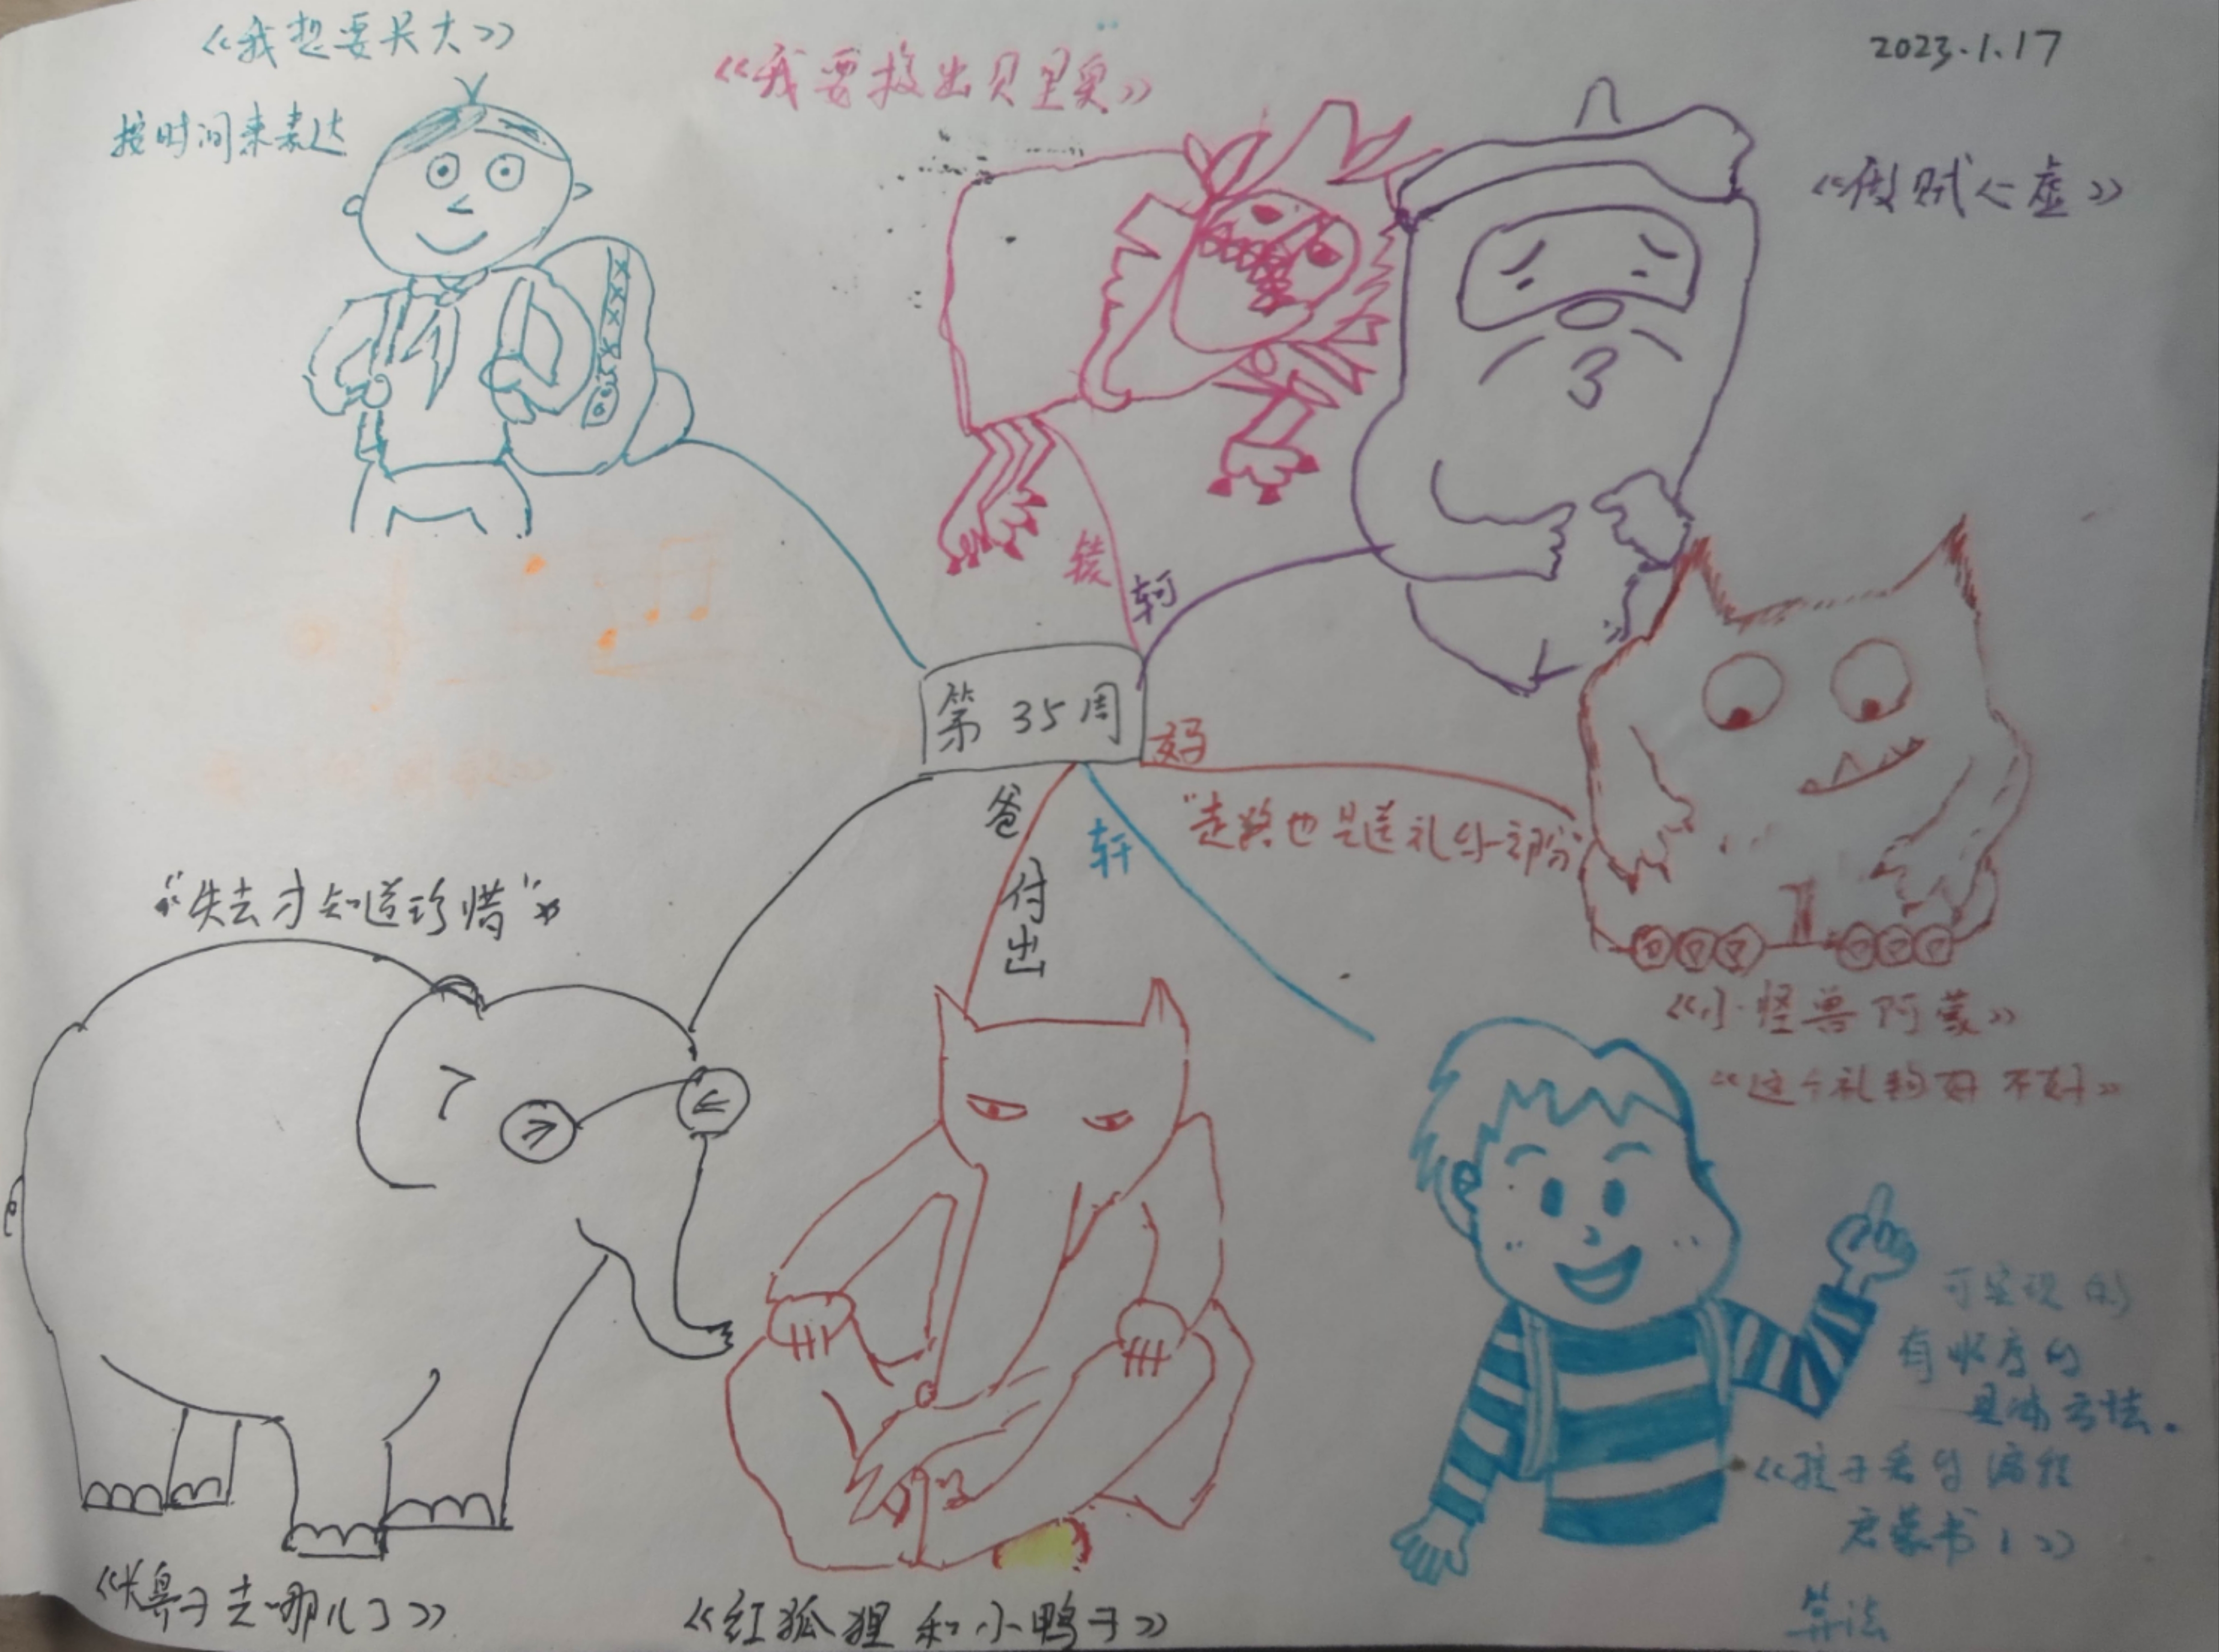 《我想要长大》
按时间来表达
《我要救出贝里奥》
2023.1.17
《做贼心虚》
轲
第35周
妈
"走路也是送礼的一部分"
爸
付出
轩
"失去才知道珍惜"
《小怪兽阿蒙》
《这个礼物好不好》
可实现的
有顺序的
具体方法。
《孩子看的编程
启蒙书1》
算法
《长鼻子去哪儿了》
《红狐狸和小鸭子》